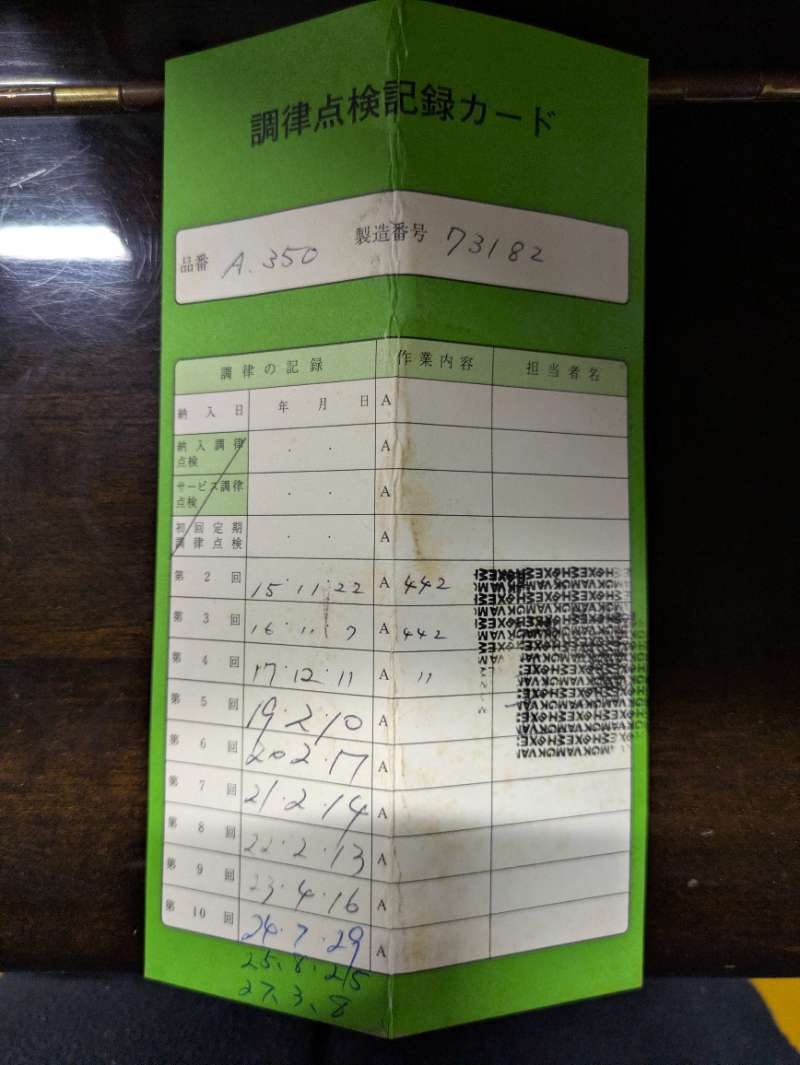 調律点検記録カード
品番 A.350 製造番号 73182
調律の記録 作業内容 担当者名
納入日 年 月 日 A
納入調律点検 ・ ・ A
サービス調律点検 ・ ・ A
初回定期調律点検 ・ ・ A
第2回 15・11・22 A 442
第3回 16・11・7 A 442
第4回 17・12・11 A 〃
第5回 19・2・10 A
第6回 20・2・17 A
第7回 21・2・14 A
第8回 22・2・13 A
第9回 23・4・16 A
第10回 24・7・29 A
25、8・25
27、3、8